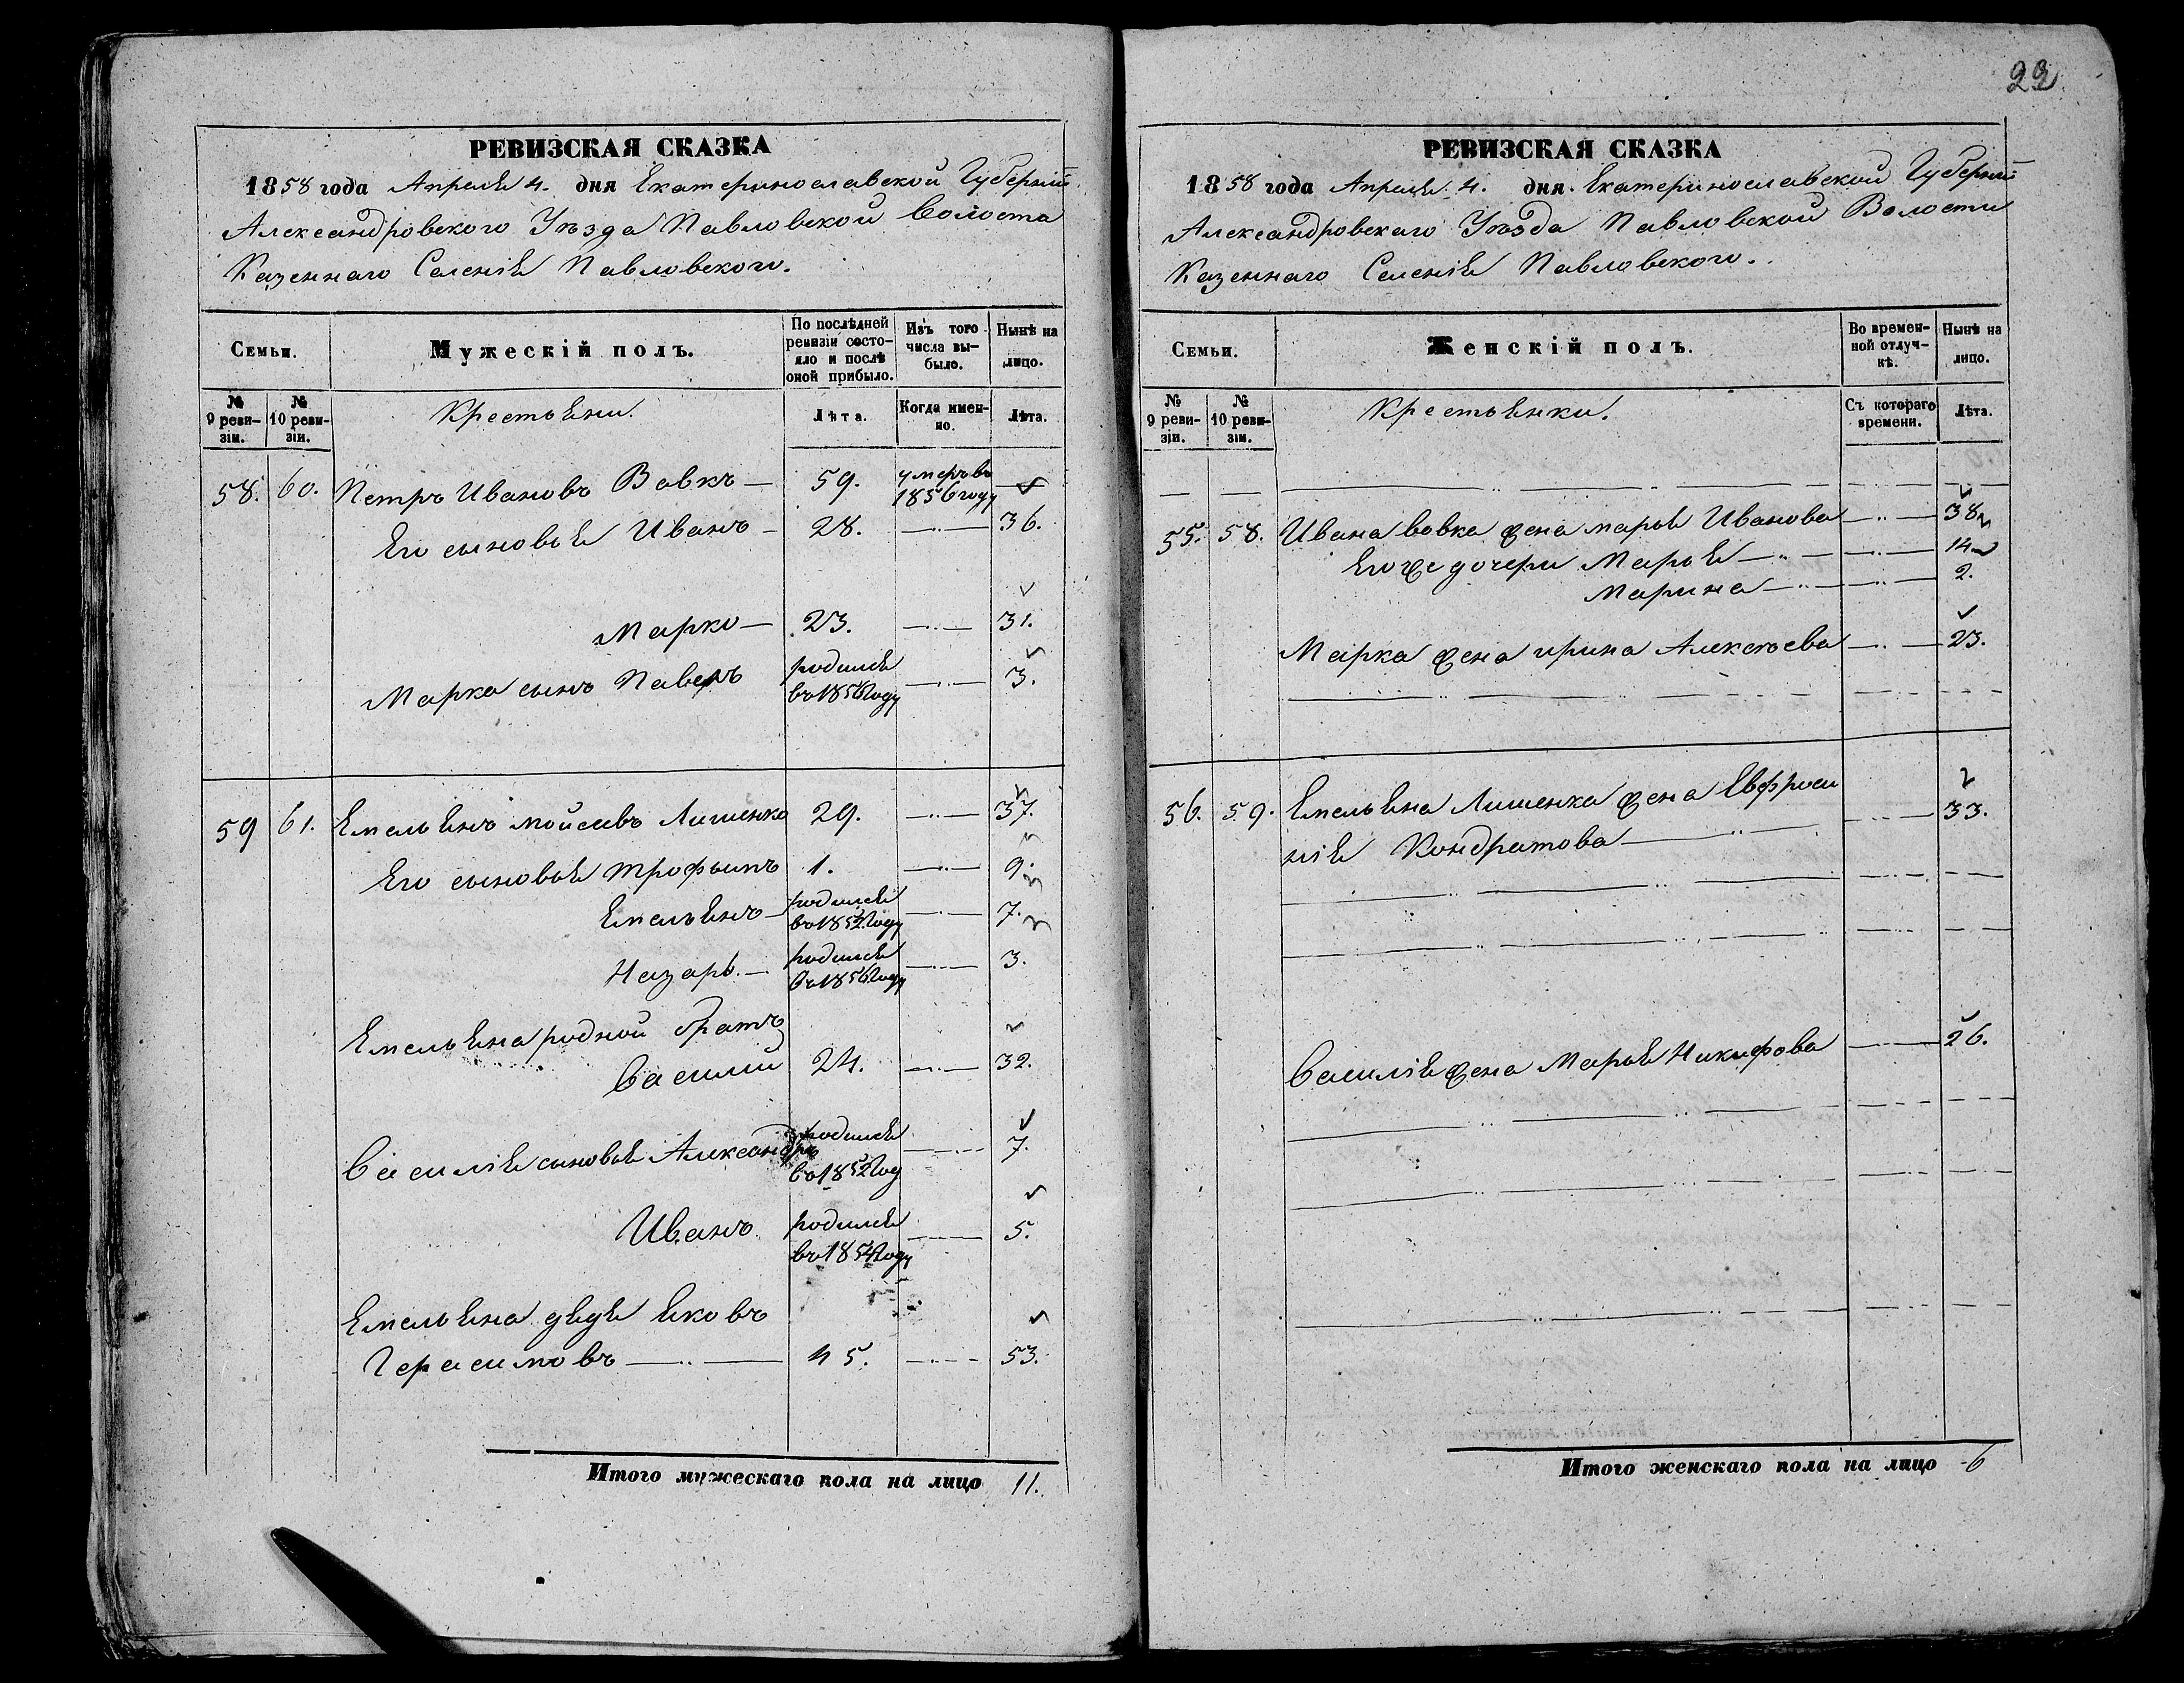 РЕВИЗСКАЯ СКАЗКА
1858 года Апреля 4. дня Екатеринославской Губернiи
Александровского Уѣзда Павловской Волости
Казеннаго Селенiя Павловского.
Семьи.
Мужескiй полъ.
По послѣдней ревизiи состояло и послѣ оной прибыло.
Изъ того числа выбыло.
Нынѣ на лицо.
№ 9 ревизiи.
№ 10 ревизiи.
Крестьяни.
Лѣта.
Когда именно.
Лѣта.
58. 60. Петръ Ивановъ Вовкъ — 59. умеръ въ 1856 году —
Его сыновья Иванъ — 28. —..— 36.
Марко — 23. —..— 31.
Марка сынъ Павелъ родился въ 1856 году —..— 3.
59 61. Емельянъ Мойсеевъ Лишенко 29. —..— 37.
Его сыновья Трофымъ 1. —..— 9.
Емельянъ — родился въ 1852 году —..— 7.
Назаръ. — родился въ 1856 году —..— 3.
Емельяна родной братъ
Василий 24. —..— 32.
Василiя сыновья Александръ родился въ 1852 год —..— 7.
Иванъ родился въ 1854 году —..— 5.
Емельяна дядя Яковъ
Герасимовъ —..— 45. —..— 53.
Итого мужескаго пола на лицо 11.
РЕВИЗСКАЯ СКАЗКА
1858 года Апреля 4. дня. Екатеринославской Губернiи
Александровскаго Уѣзда Павловской Волости
Казеннаго Селенiя Павловского.
Семьи.
Женскiй полъ.
Во временной отлучкѣ.
Нынѣ на лицо.
№ 9 ревизiи.
№ 10 ревизiи.
Крестьянки.
Съ котораго времени.
Лѣта.
55. 58. Ивана Вовка жена Марья Иванова —..— 38
Его же дочери Марья —..— 14
Марина —..— 2.
Марка жена Ирина Алексѣева —..— 23.
56. 59. Емельяна Лишенка жена Евфроси
нiя Кондратова —..— 33.
Василiя жена Марья Никифова —..— 26.
Итого женскаго пола на лицо 6